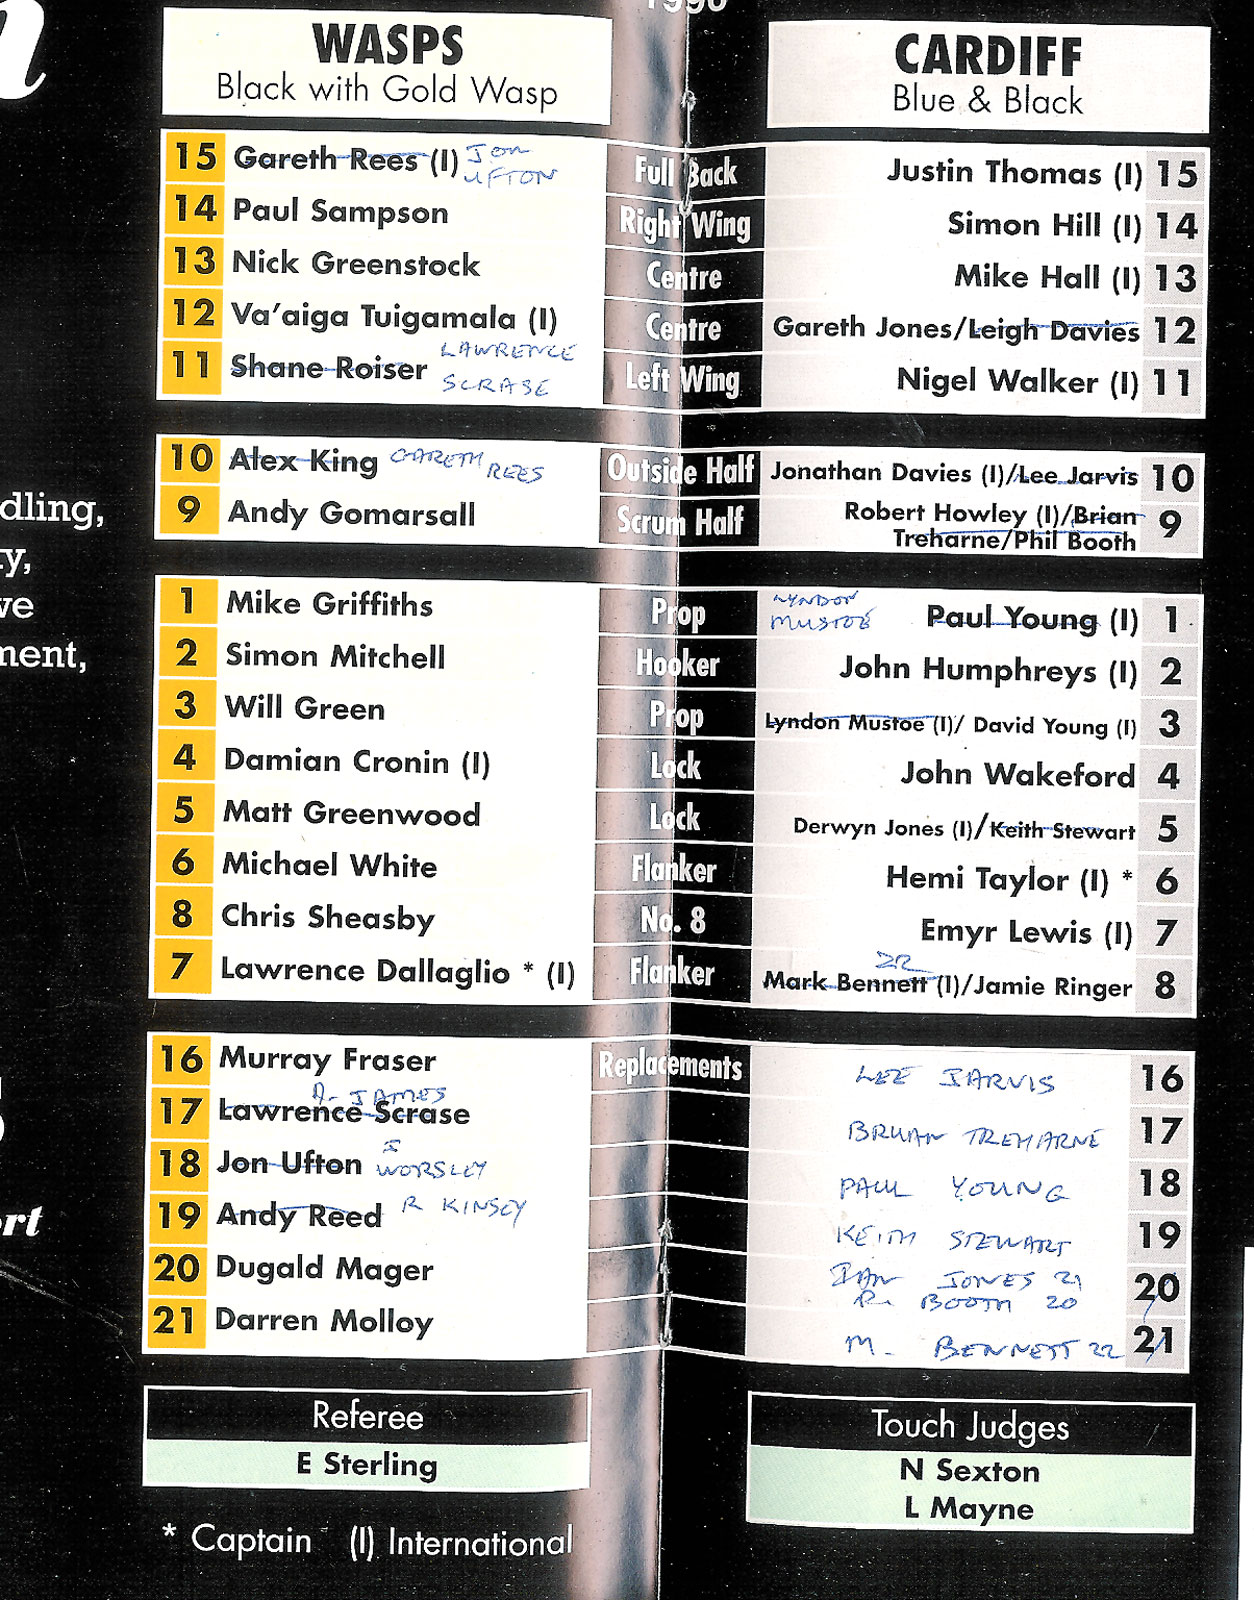 1996
WASPS
Black with Gold Wasp
CARDIFF
Blue & Black
15 Gareth Rees (I) JON UFTON Full Back Justin Thomas (I) 15
14 Paul Sampson Right Wing Simon Hill (I) 14
13 Nick Greenstock Centre Mike Hall (I) 13
12 Va'aiga Tuigamala (I) Centre Gareth Jones/Leigh Davies 12
11 Shane Roiser LAWRENCE SCRASE Left Wing Nigel Walker (I) 11
10 Alex King GARETH REES Outside Half Jonathan Davies (I)/Lee Jarvis 10
9 Andy Gomarsall Scrum Half Robert Howley (I)/Brian
Treharne/Phil Booth 9
1 Mike Griffiths Prop LYNDON MUSTOE Paul Young (I) 1
2 Simon Mitchell Hooker John Humphreys (I) 2
3 Will Green Prop Lyndon Mustoe (I)/ David Young (I) 3
4 Damian Cronin (I) Lock John Wakeford 4
5 Matt Greenwood Lock Derwyn Jones (I)/Keith Stewart 5
6 Michael White Flanker Hemi Taylor (I) * 6
8 Chris Sheasby No. 8 Emyr Lewis (I) 7
7 Lawrence Dallaglio * (I) Flanker 22 Mark Bennett (I)/Jamie Ringer 8
16 Murray Fraser Replacements LEE JARVIS 16
17 Lawrence Scrase A. JAMES BRIAN TREHARNE 17
18 Jon Ufton J WORSLEY PAUL YOUNG 18
19 Andy Reed R KINSEY KEITH STEWART 19
20 Dugald Mager IAN JONES 21
P. BOOTH 20 20
21 Darren Molloy M. BENNETT 22 21
Referee
E Sterling
Touch Judges
N Sexton
L Mayne
* Captain (I) International
dling,
y,
ve
ment,
ort